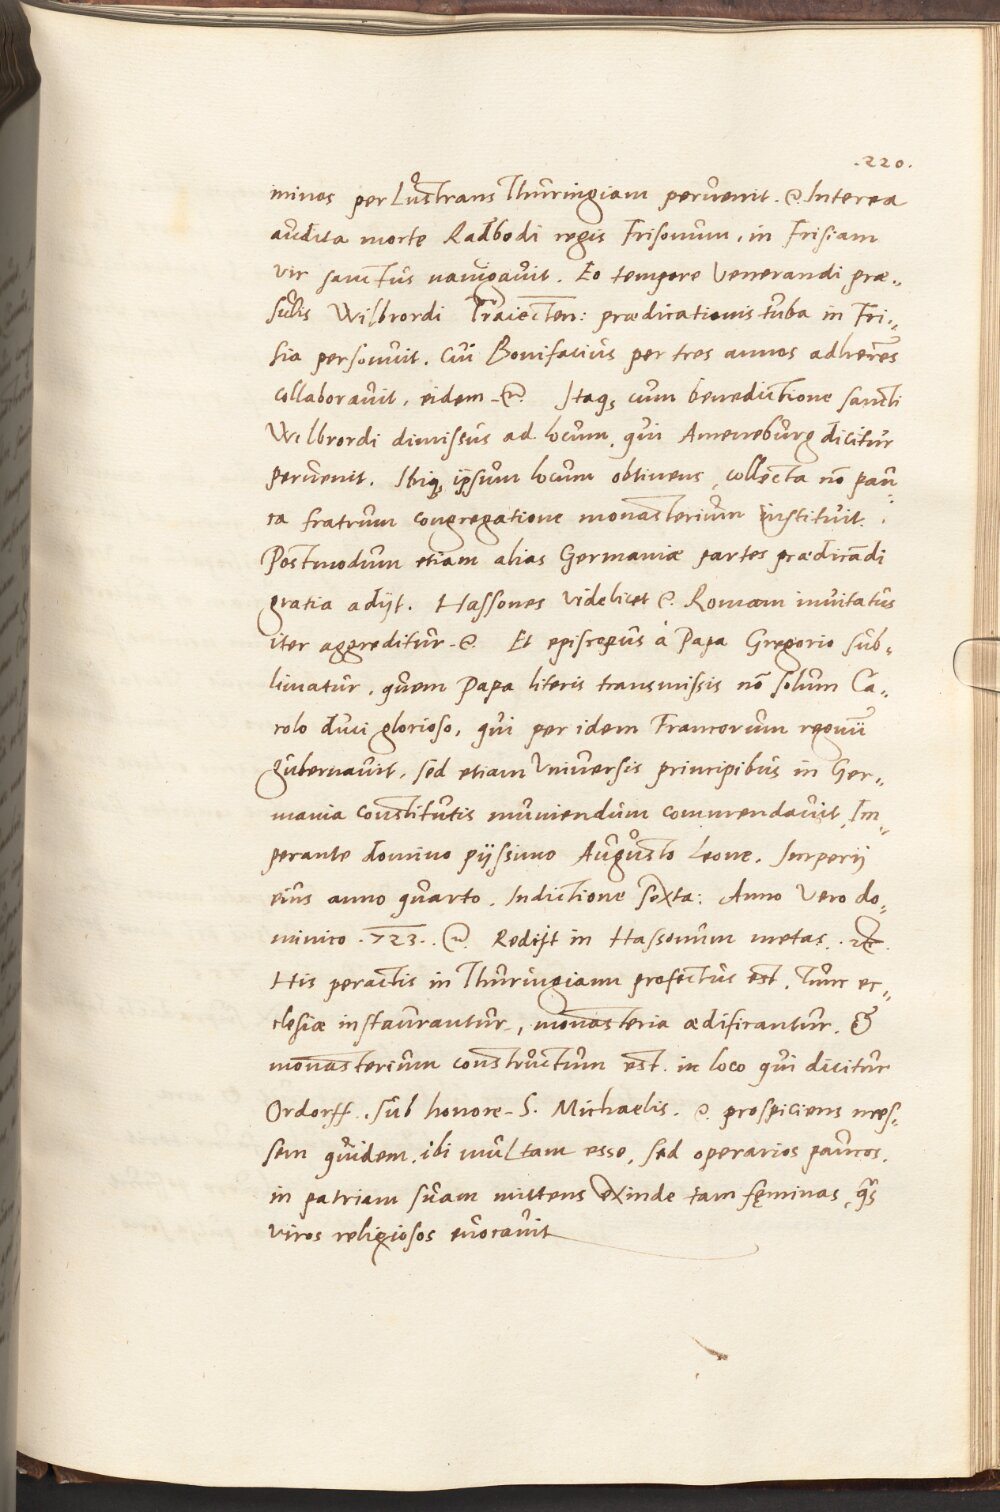 .220.
minos per Lustrans Thuringiam peruenit. &. Interea
audita morte Radbodi regis Frisonum, in Frisiam
vir sanctus nauigauit. Eo tempore Venerandi præ„
sulis Wilbrordi Traiecten: prædicationis tuba in Fri„
sia personuit. Cui Bonifacius per tres annos adherēs
collaborauit, eidem &. Itaq; cum benedictione sancti
Wilbrordi dimissus ad locum, qui Ameneburg dicitur
peruenit. Ibiq; ipsum locum obtinens, collecta nō pau„
ca fratrum congregatione monasterium instituit.
Postmodum etiam alias Germaniæ partes prædicādi
gratia adijt. Hassones videlicet &. Romam inuitatus
iter aggreditur &. Et episcopus à Papa Gregorio sub„
limatur, quem Papa literis transmissis nō solum Ca„
rolo duci glorioso, qui per idem Francorum regnū
gubernauit, sed etiam Vniuersis principibus in Ger„
mania constitutis muniendum commendauit, Im„
perante domino pijssimo Augusto Leone. Imperij
eius anno quarto. Indictione sexta: Anno Vero do„
minico .723. &. Redijt in Hassonum metas. &.
His peractis in Thuringiam profectus est. Tunc ec„
clesiæ instaurantur, monasteria ædificantur. &
monasterium constructum est. in loco qui dicitur
Ordorff. sub honore S. Michaelis. &. prospiciens mes„
sem quidem ibi multam esse, sed operarios paucos.
in patriam suam mittens exinde tam fęminas, quās
viros religiosos euocauit